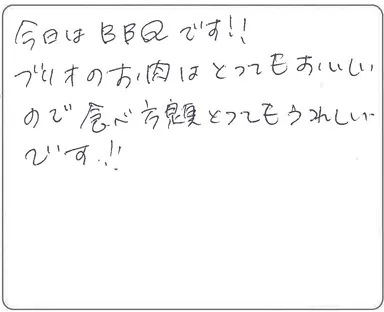 今日はBBQです!!
ブリオのお肉はとってもおいしい
ので食べ放題とってもうれしい
です!!